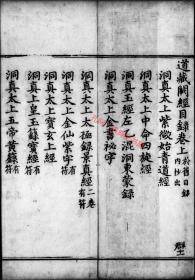 道藏闕經目錄卷上 於舊目錄內抄出
洞真太上紫微始青道經
洞真太上中命四旋經
洞真玉經左乙混洞東蒙錄
洞真太上金書祕字
洞真太上太極錄景真經 二卷有符
洞真太上金仙紫字 有符
洞真太上寶玄上經
洞真上皇玉籙寶經 有符
洞真太上五帝黃籙 有符